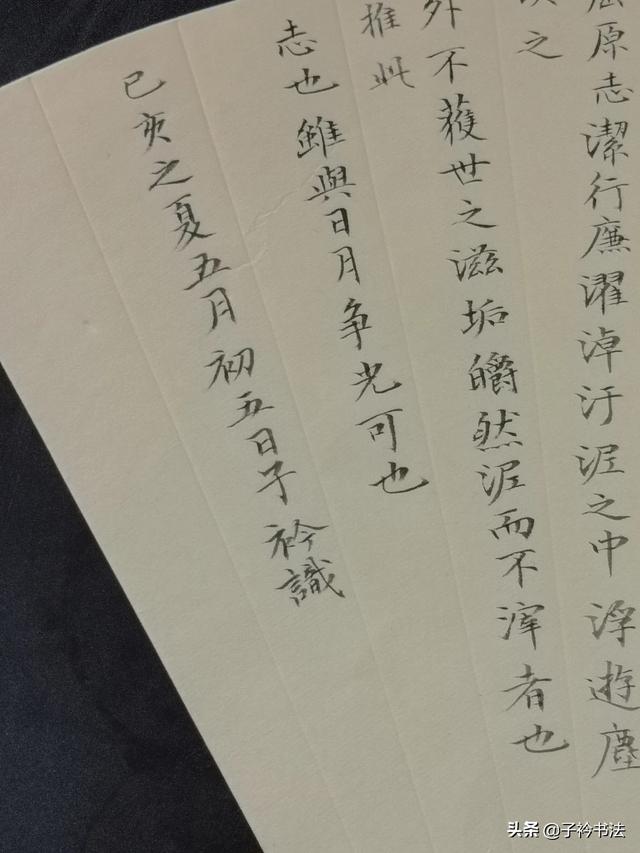 屈原志潔行廉濯淖汙泥之中浮遊塵
之
外不獲世之滋垢皭然泥而不滓者也
推此
志也雖與日月争光可也
己亥之夏五月初五日子衿識
头条 @子衿书法